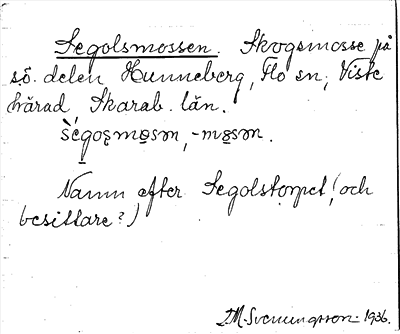 Segolsmossen. Skogsmosse på
s.ö. delen Hunneberg, Flo sn, Viste
härad Skarab. län.
-mo̤sən.
Namn efter Segolstorpet (och
besittare?)
J.M. Svenningsson. 1936.